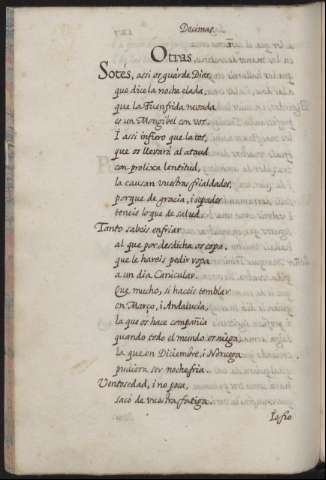 Decimas.
Otras
Sotes, assi os guarde Dios,
que dice la noche elada,
que la Fuenfrida nevada
es un Mongibel con vos.
I assi infiero que la tos,
que os llevará al ataud
con prolixa lentitud,
la causan vuestras frialdades,
porque de gracia, i
teneis lo que de salud.
Tanto sabeis enfriar
al que por desdicha os topa,
que le hareis pedir ropa
a un dia Canicular.
Que mucho, si haceis temblar
en Março, i Andalucia,
la que os hace compañia
quando todo el mundo os niega
la que en Diciembre, i Noruega
pudiera ser noche fria.
Ventosedad, i no poca,
saco de vuestra fatiga.